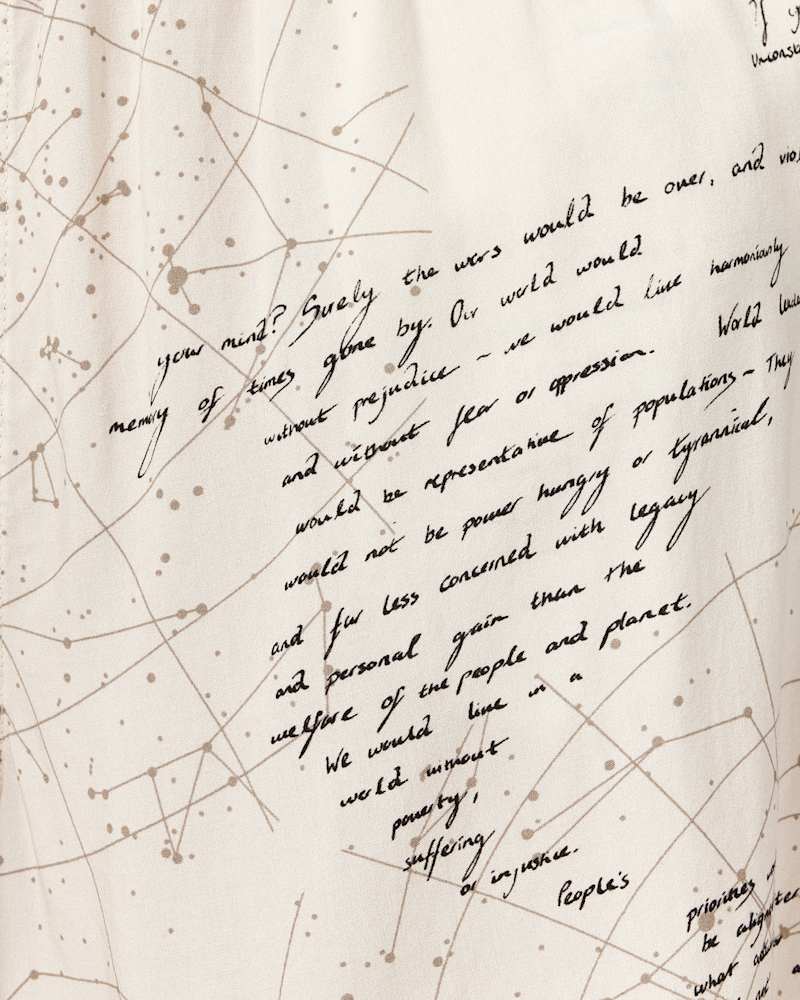 If
your mind? Surely the wars would be over, and
memory of times gone by. Our world would
without prejudice ~ we would live harmoniously
and without fear or oppression. World
would be representative of populations ~ They
would not be power hungry or tyrannical,
and far less concerned with legacy
and personal gain than the
welfare of the people and planet.
We would live in a
world without
poverty,
suffering
or injustice.
People's
priorities
be
what